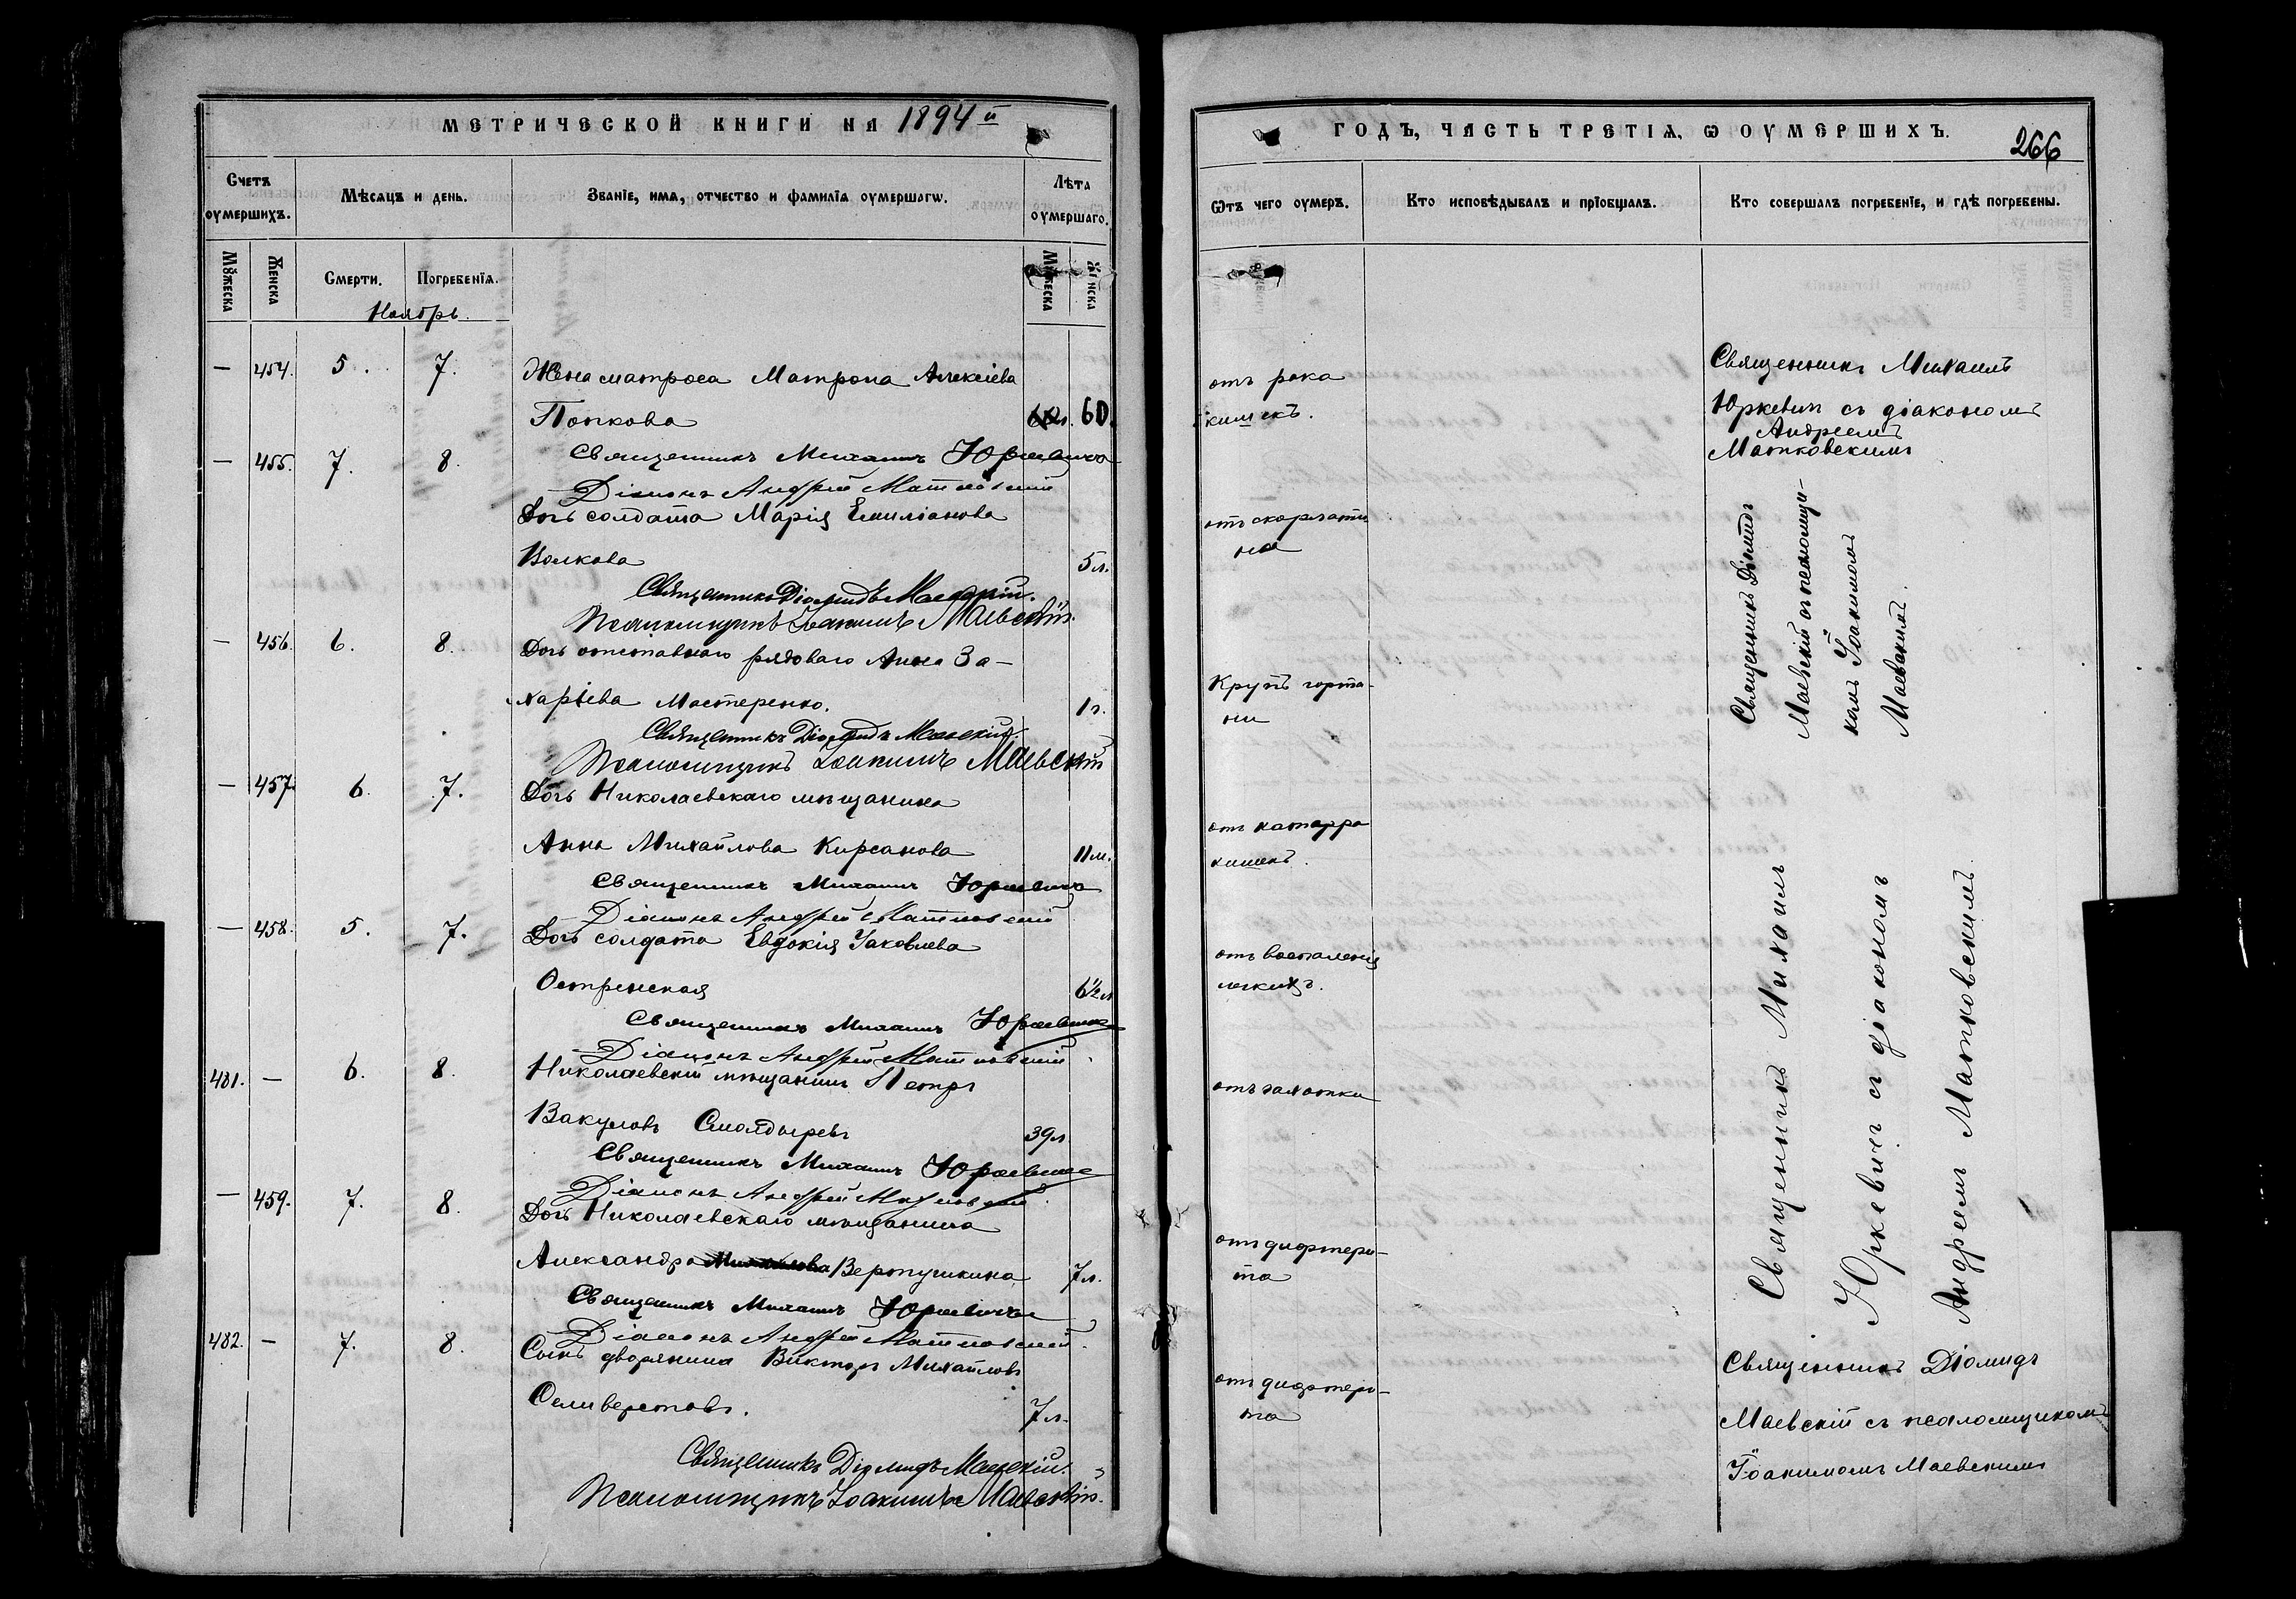 МЕТРИЧЕСКОЙ КНИГИ НА 1894й
Счетъ оумершихъ.
Мѣсяцъ и день.
Званіе, имя, отчество и фамилія оумершагѡ.
Лѣта оумершаго.
Мꙋжеска
Женска
Смерти.
Погребенія.
Мꙋжеска
Женска
Ноябрь.
— 454. 5. 7. Жена матроса Матрона Алексіева
Попкова 60.
Священникъ Михаилъ Юркевичъ
Діаконъ Андрей Матковскій
— 455. 7. 8. Дочь солдата Марія Емиліанова
Волкова 5 л.
Священникъ Діомидъ Маевскій.
Псаломщикъ Іоакимъ Маевскій.
— 456. 6. 8. Дочь отставного рядового Анна За-
харіева Мастеренко. 1 г.
Священникъ Діомидъ Маевскій.
Псаломщикъ Іоакимъ Маевскій
— 457. 6. 7. Дочь Николаевскаго мѣщанина
Анна Михайлова Кирсанова 11 м.
Священникъ Михаилъ Юркевичъ
Діаконъ Андрей Матковскій
— 458. 5. 7. Дочь солдата Евдокія Іаковлева
Остренская 6½ л
Священникъ Михаилъ Юркевичъ
Діаконъ Андрей Матковскій
481. — 6. 8. Николаевскій мѣщанинъ Петръ
Вакуловъ Смолдыревъ 39 л
Священникъ Михаилъ Юркевичъ
Діаконъ Андрей Матковскій.
— 459. 7. 8. Дочь Николаевскаго мѣщанина
Александра Вертушкина 7 л.
Священникъ Михаилъ Юркевичъ
Діаконъ Андрей Матковскій.
482. — 7. 8. Сынъ дворянина Викторъ Михайловъ
Селиверстовъ. 7 л.
Священникъ Діомидъ Маевскій.
Псаломщикъ Іоакимъ Маевскій.
ГОДЪ, ЧАСТЬ ТРЕТІЯ, Ѡ ОУМЕРШИХЪ.
266
Ѿтъ чего оумеръ.
Кто исповѣдывалъ и пріобщалъ.
Кто совершалъ погребеніе, и гдѣ погребены.
отъ рака
кишекъ.
Священникъ Михаилъ
Юркевич съ діакономъ
Андреемъ
Матковскимъ
отъ скарлати
ны
Крупъ горта-
ни
Священникъ Діомидъ
Маевскій съ псаломщи-
комъ Іоакимомъ
Маевскимъ.
отъ катарра
кишекъ.
отъ воспаленія
легкихъ.
отъ чахотки
отъ дифтери-
та
Священникъ Михаилъ
Юркевичъ съ діакономъ
Андреемъ Матковскимъ
отъ дифтери-
та
Священникъ Діомидъ
Маевскій съ псаломщикомъ
Іоакимомъ Маевскимъ